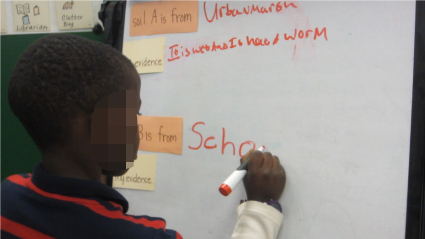 Librarian
Clutter
Bug
soil A is from Urban Marsh
evidence It is wet And It had A worM
B is from Scho
y evidence